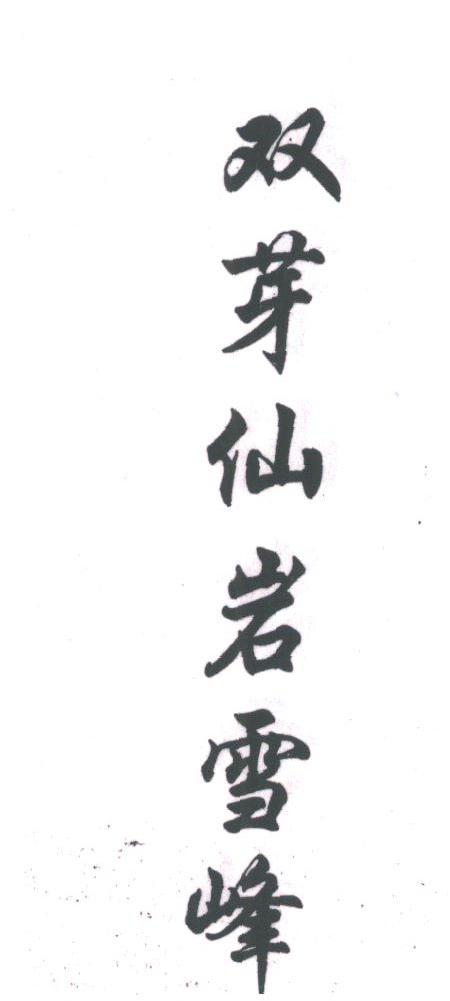 双芽仙岩雪峰